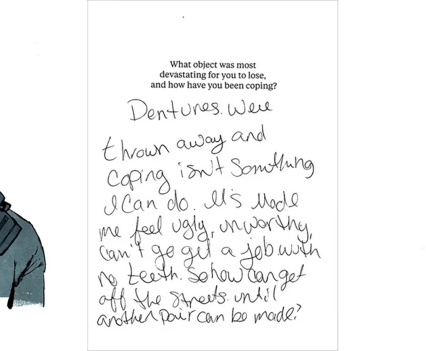 What object was most
devastating for you to lose,
and how have you been coping?
Dentures. Were
thrown away and
coping isn't something
I can do. It's made
me feel ugly, unworthy,
can't go get a job with
no teeth. So how can get
off the streets. until
another pair can be made?